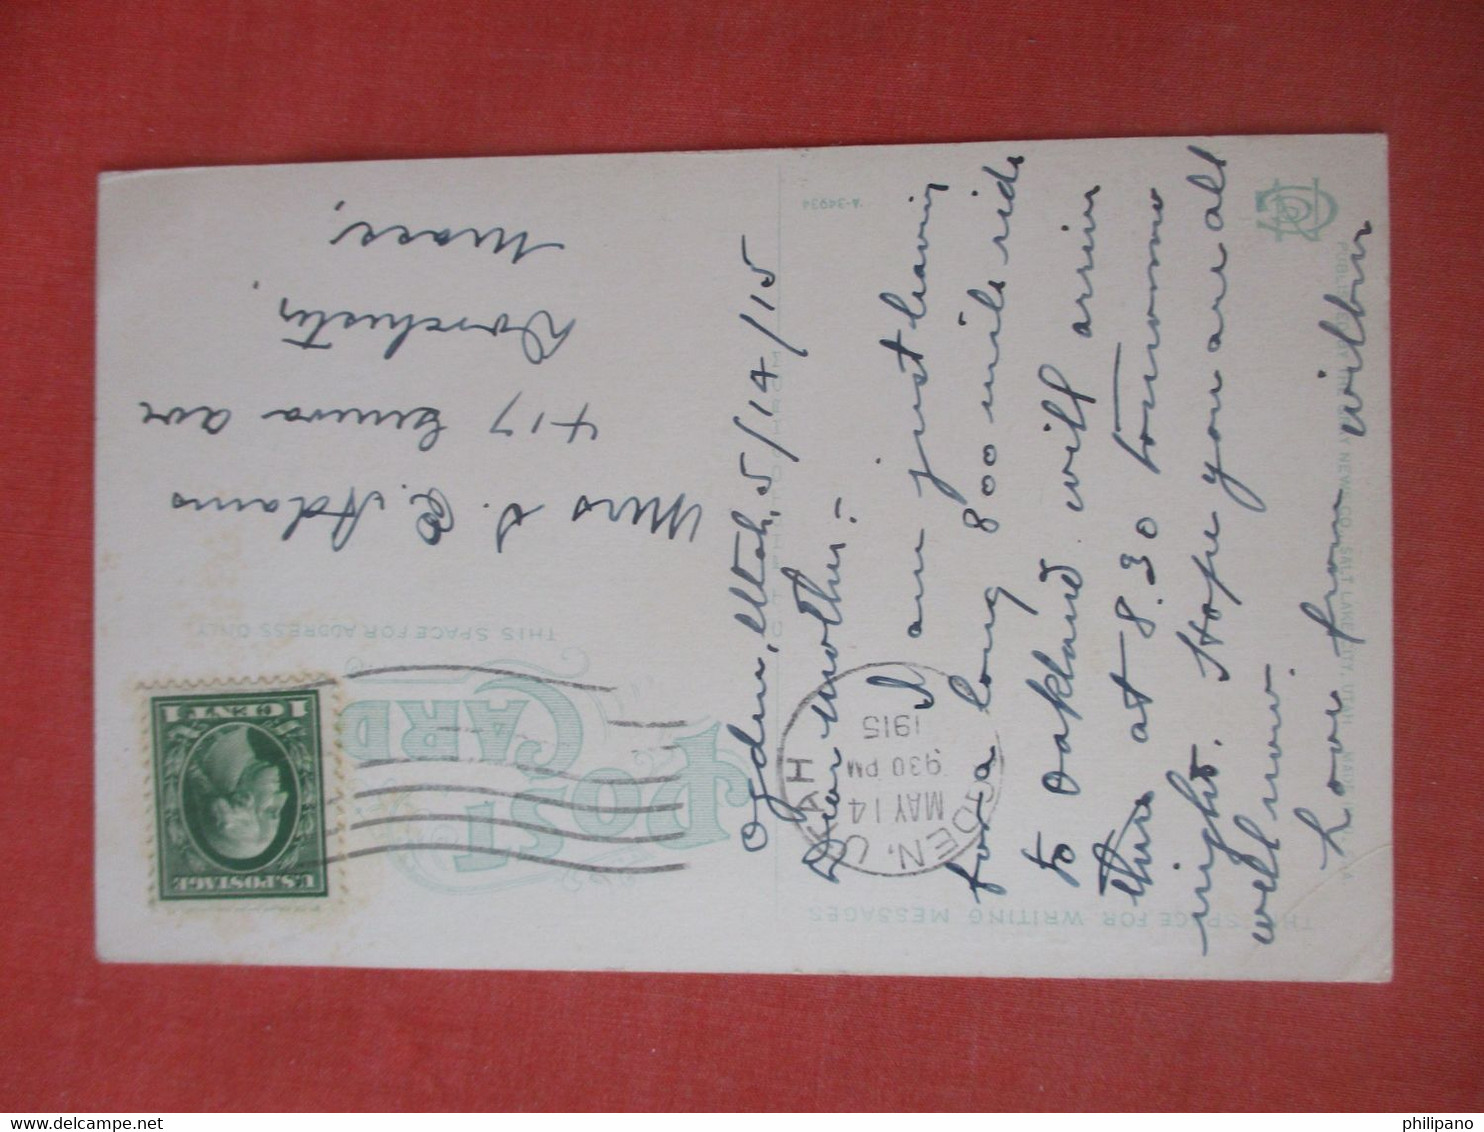 Ogden, Utah, 5/14/15
Dear Mother:-
I am just leaving
for a long 800 mile ride
to Oakland will arrive
there at 8.30 tomorrow
night. Hope you are all
well now.
Love from Wilbur
Mrs S. E. Adams
417 Geneva Ave
Dorchester,
Mass.
POST
CARD
THIS SPACE FOR ADDRESS ONLY
THIS SPACE FOR WRITING MESSAGES
A-34934
OGDEN, UTAH
MAY 14
930 PM
1915
U.S. POSTAGE
1 CENT 1
philipano